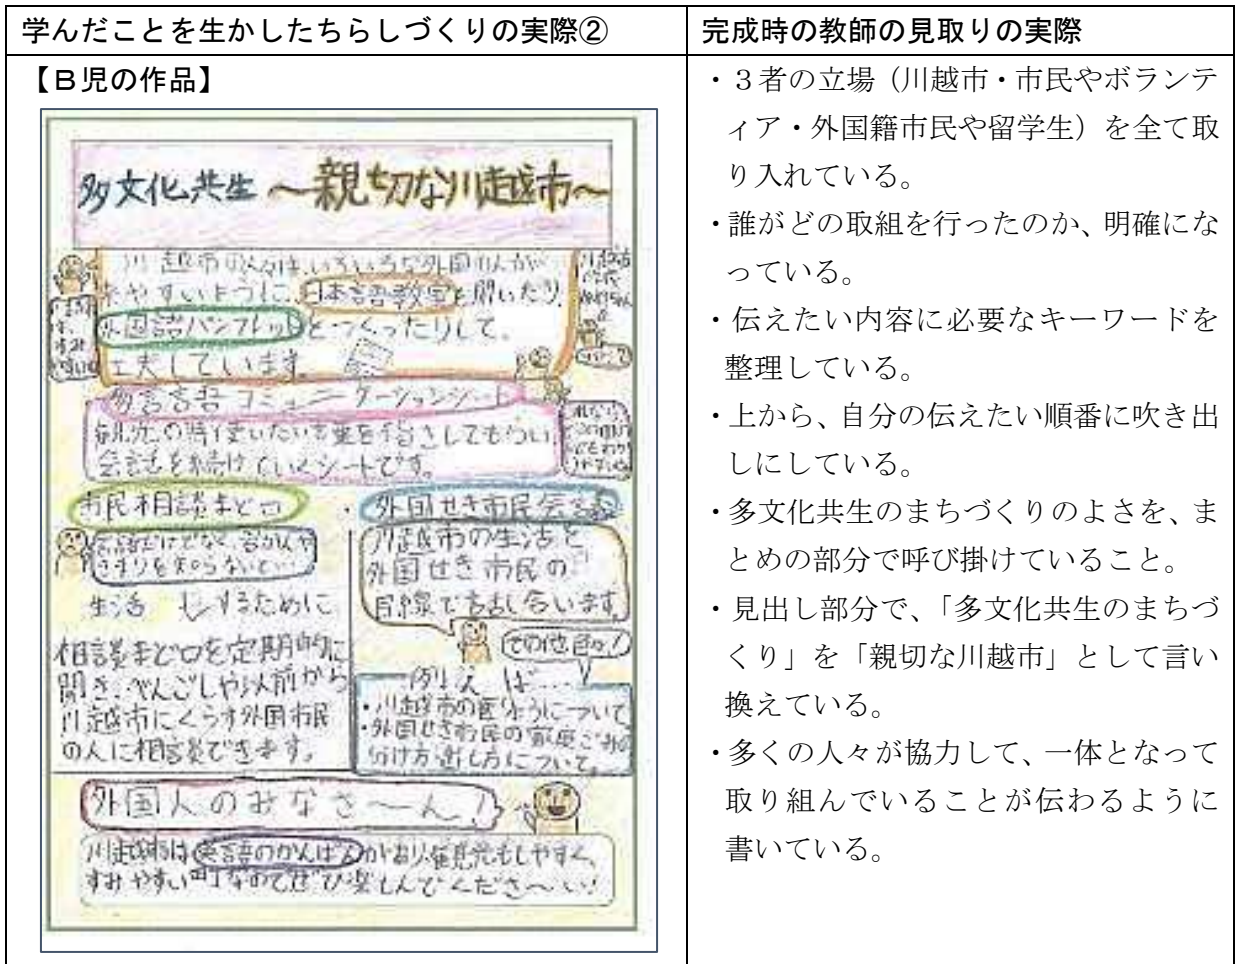 学んだことを生かしたちらしづくりの実際②
【B児の作品】
多文化共生 ～親切な川越市～
川越市の人々は、いろいろな外国の人が
来やすいように、日本語教室を開いたり、
外国語パンフレットをつくったりして。
工夫しています。
多言語コミュニケーションシート
の時使いたい言葉を指さしてもらい、
会話を続けていくシートです。
市民相談まど口
生活 するために
相談まど口を定期的に
開き、べんごしや以前から
川越市にくらす外国市民
の人に相談できます。
外国せき市民会議
川越市の生活を
外国せき市民の
目線で話し合います。
その他色々！
例えば…
・川越市の医りょうについて
・外国せき市民の家庭ごみの
分け方・出し方について。
外国人のみなさ～ん！
川越市は英語のかんばんがあり、観光もしやすく、
すみやすい町なのでぜひ楽しんでくださ～い！
完成時の教師の見取りの実際
・３者の立場（川越市・市民やボランテ
ィア・外国籍市民や留学生）を全て取
り入れている。
・誰がどの取組を行ったのか、明確にな
っている。
・伝えたい内容に必要なキーワードを
整理している。
・上から、自分の伝えたい順番に吹き出
しにしている。
・多文化共生のまちづくりのよさを、ま
とめの部分で呼び掛けていること。
・見出し部分で、「多文化共生のまちづ
くり」を「親切な川越市」として言い
換えている。
・多くの人々が協力して、一体となって
取り組んでいることが伝わるように
書いている。